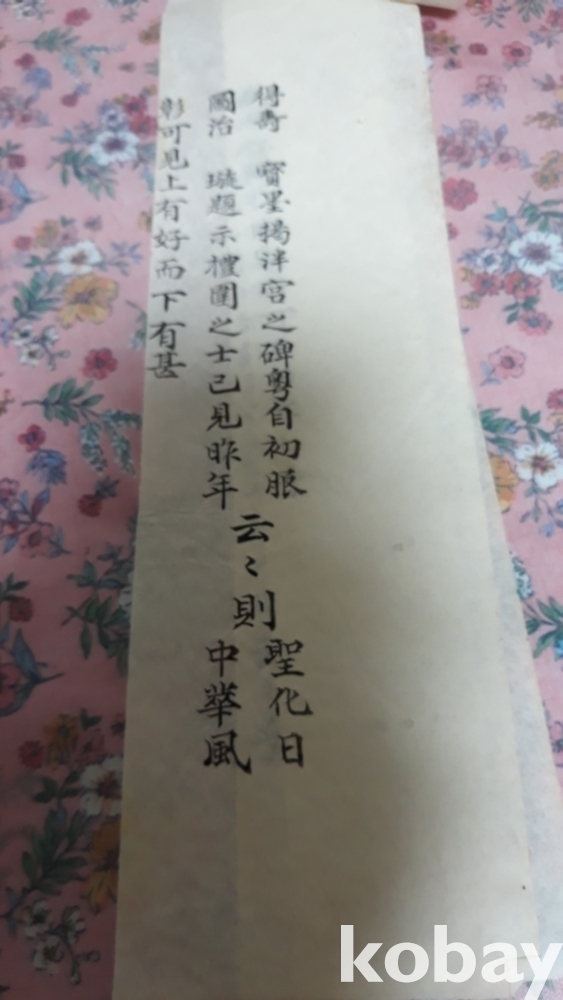 得壽 寶墨揭泮宮之碑粤自初服
圖治 璇題示禮圍之士已見昨年
云〻則
聖化日
中華風
彰可見上有好而下有甚
kobay